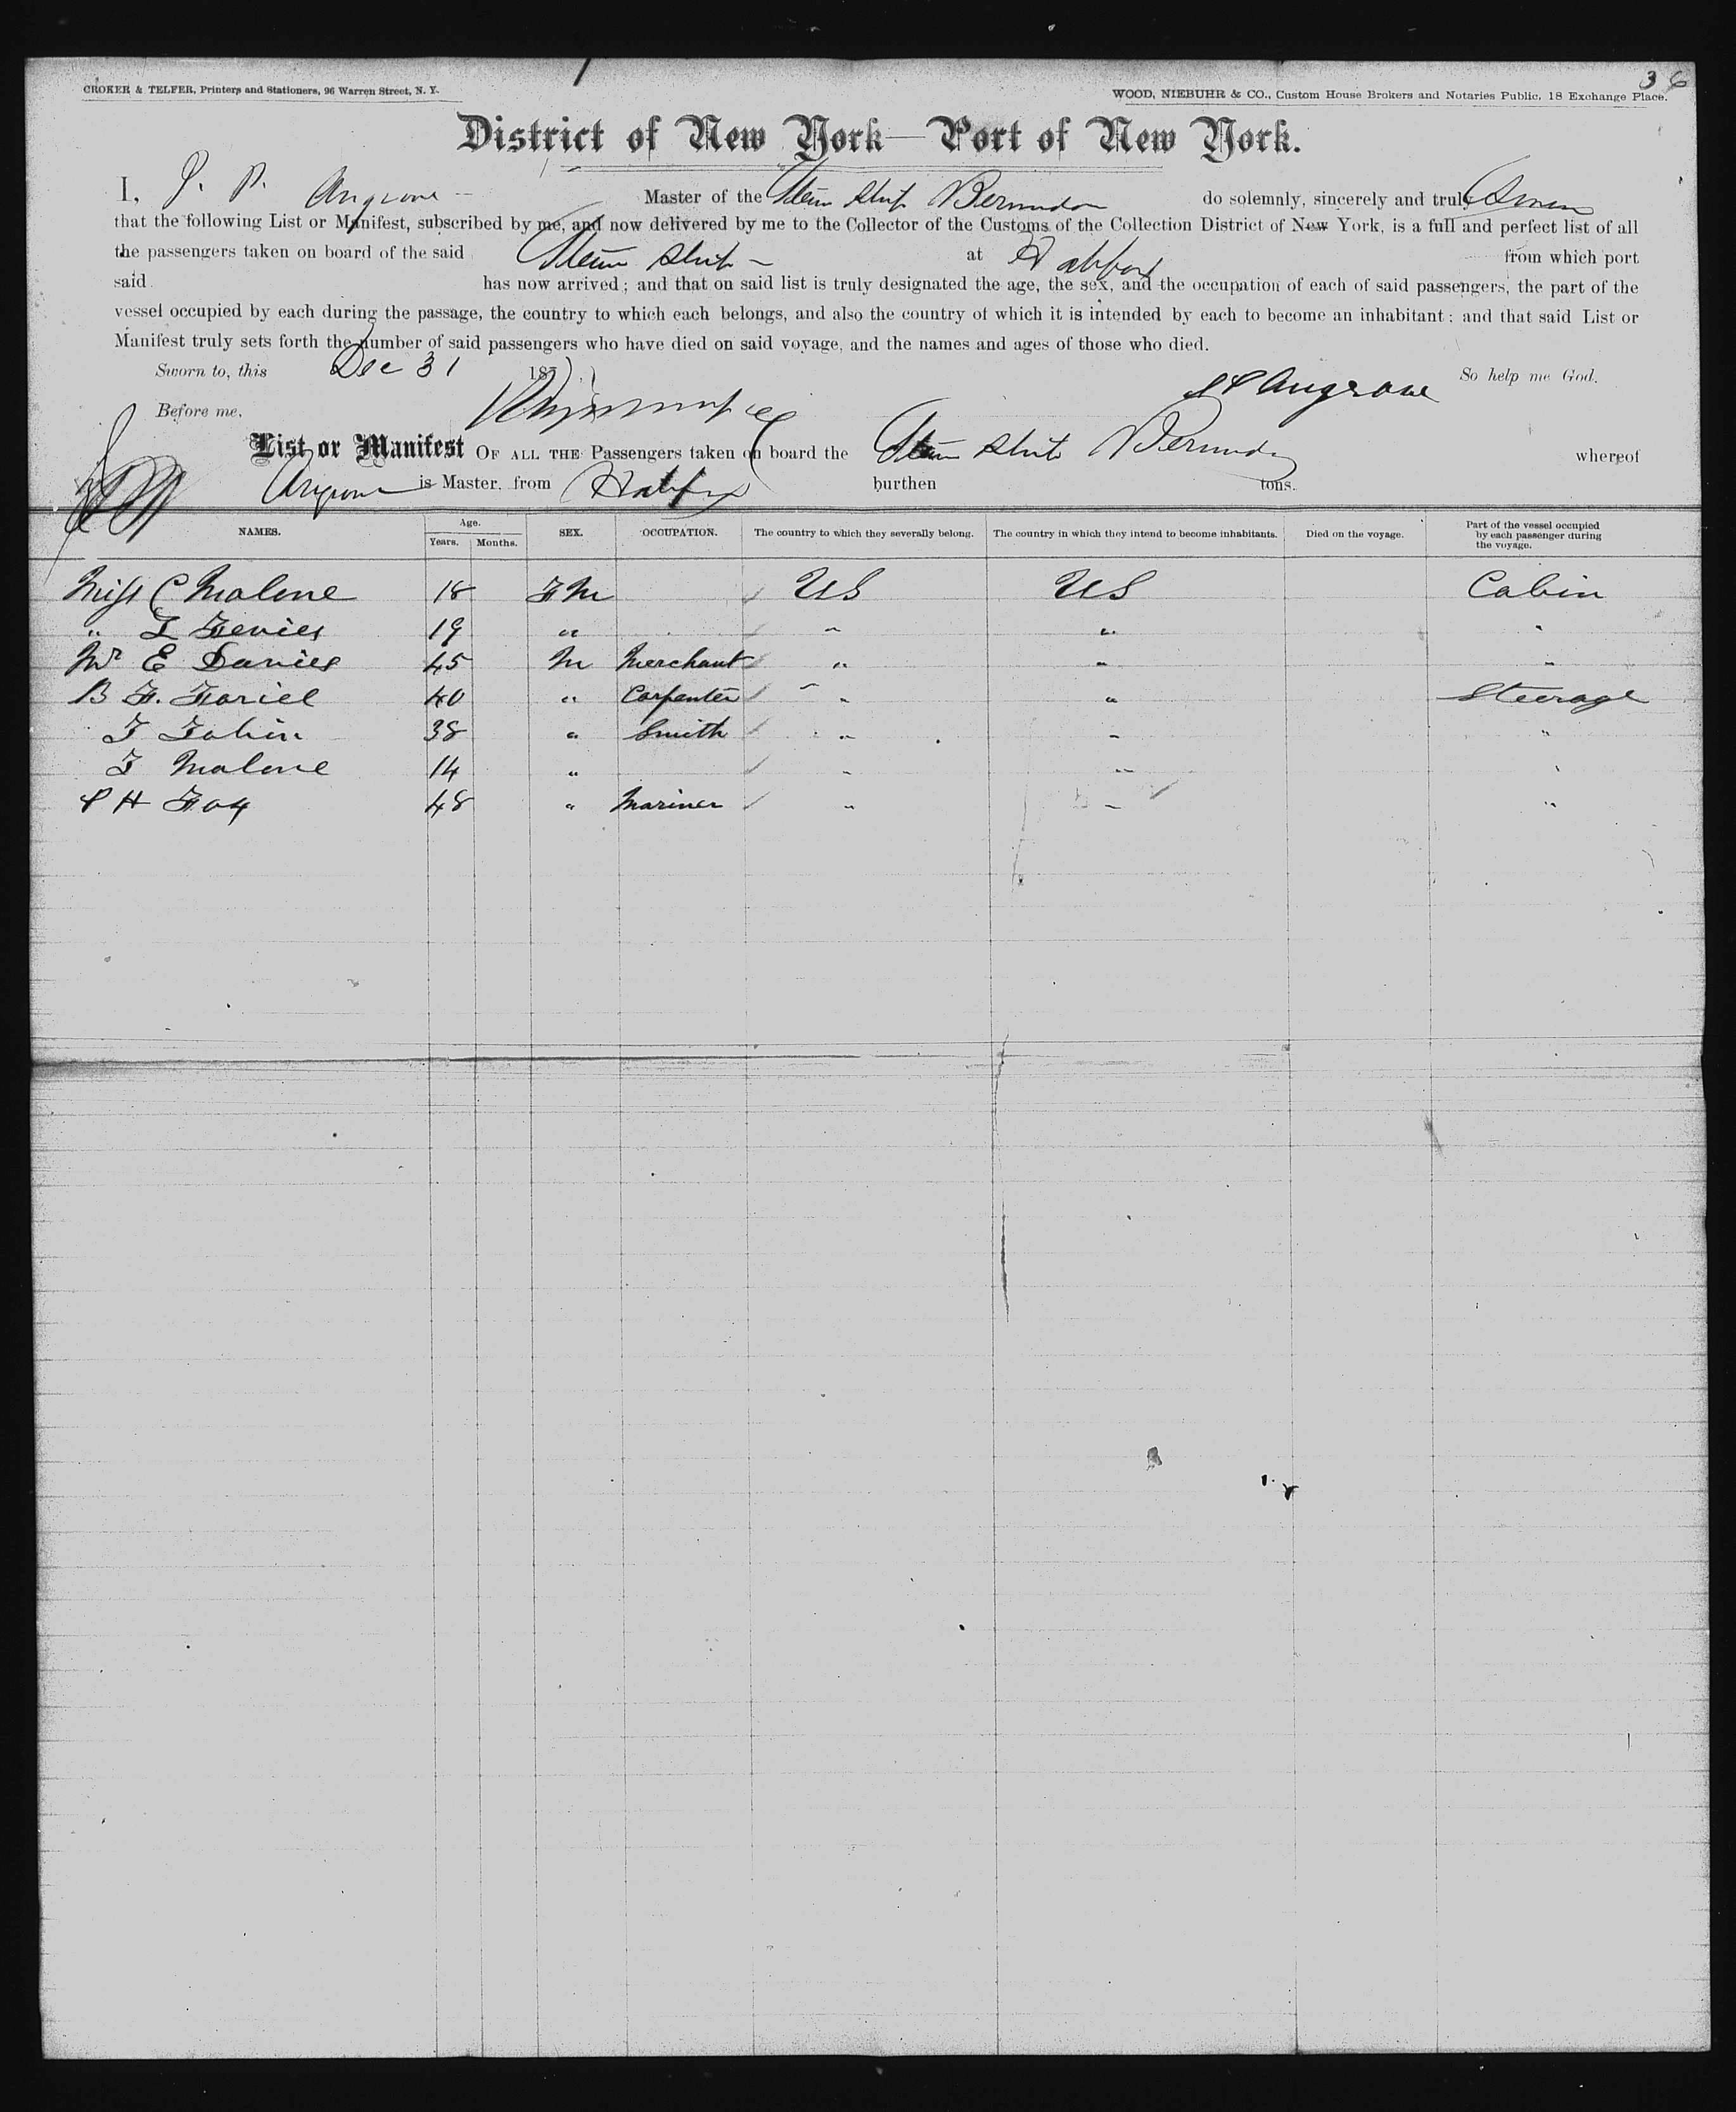 3 6
CROKER & TELFER, Printers and Stationers, 96 Warren Street, N. Y.
WOOD, NIEBUHR & CO., Custom House Brokers and Notaries Public, 18 Exchange Place.
District of New York—Port of New York.
I, J. P. Angrove Master of the Steam Ship Bermuda do solemnly, sincerely and truly Swear
that the following List or Manifest, subscribed by me, and now delivered by me to the Collector of the Customs of the Collection District of New York, is a full and perfect list of all
the passengers taken on board of the said Steam Ship at Halifax from which port
said has now arrived; and that on said list is truly designated the age, the sex, and the occupation of each of said passengers, the part of the
vessel occupied by each during the passage, the country to which each belongs, and also the country of which it is intended by each to become an inhabitant: and that said List or
Manifest truly sets forth the number of said passengers who have died on said voyage, and the names and ages of those who died.
Sworn to, this Dec 31 187 So help me God.
Before me, J P Angrove
List or Manifest OF ALL THE Passengers taken on board the Steam Ship Bermuda whereof
Angrove is Master, from Halifax burthen tons.
NAMES. Age. Years. Months. SEX. OCCUPATION. The country to which they severally belong. The country in which they intend to become inhabitants. Died on the voyage. Part of the vessel occupied by each passenger during the voyage.
Miss C Malone 18 FM US US Cabin
" 19 " " " "
Mr E Davies 45 M Merchant " " "
B F. 40 " Carpenter " " Steerage
Tobin 38 " Smith " " "
Malone 14 " " " "
P H Foy 48 " Mariner " " "